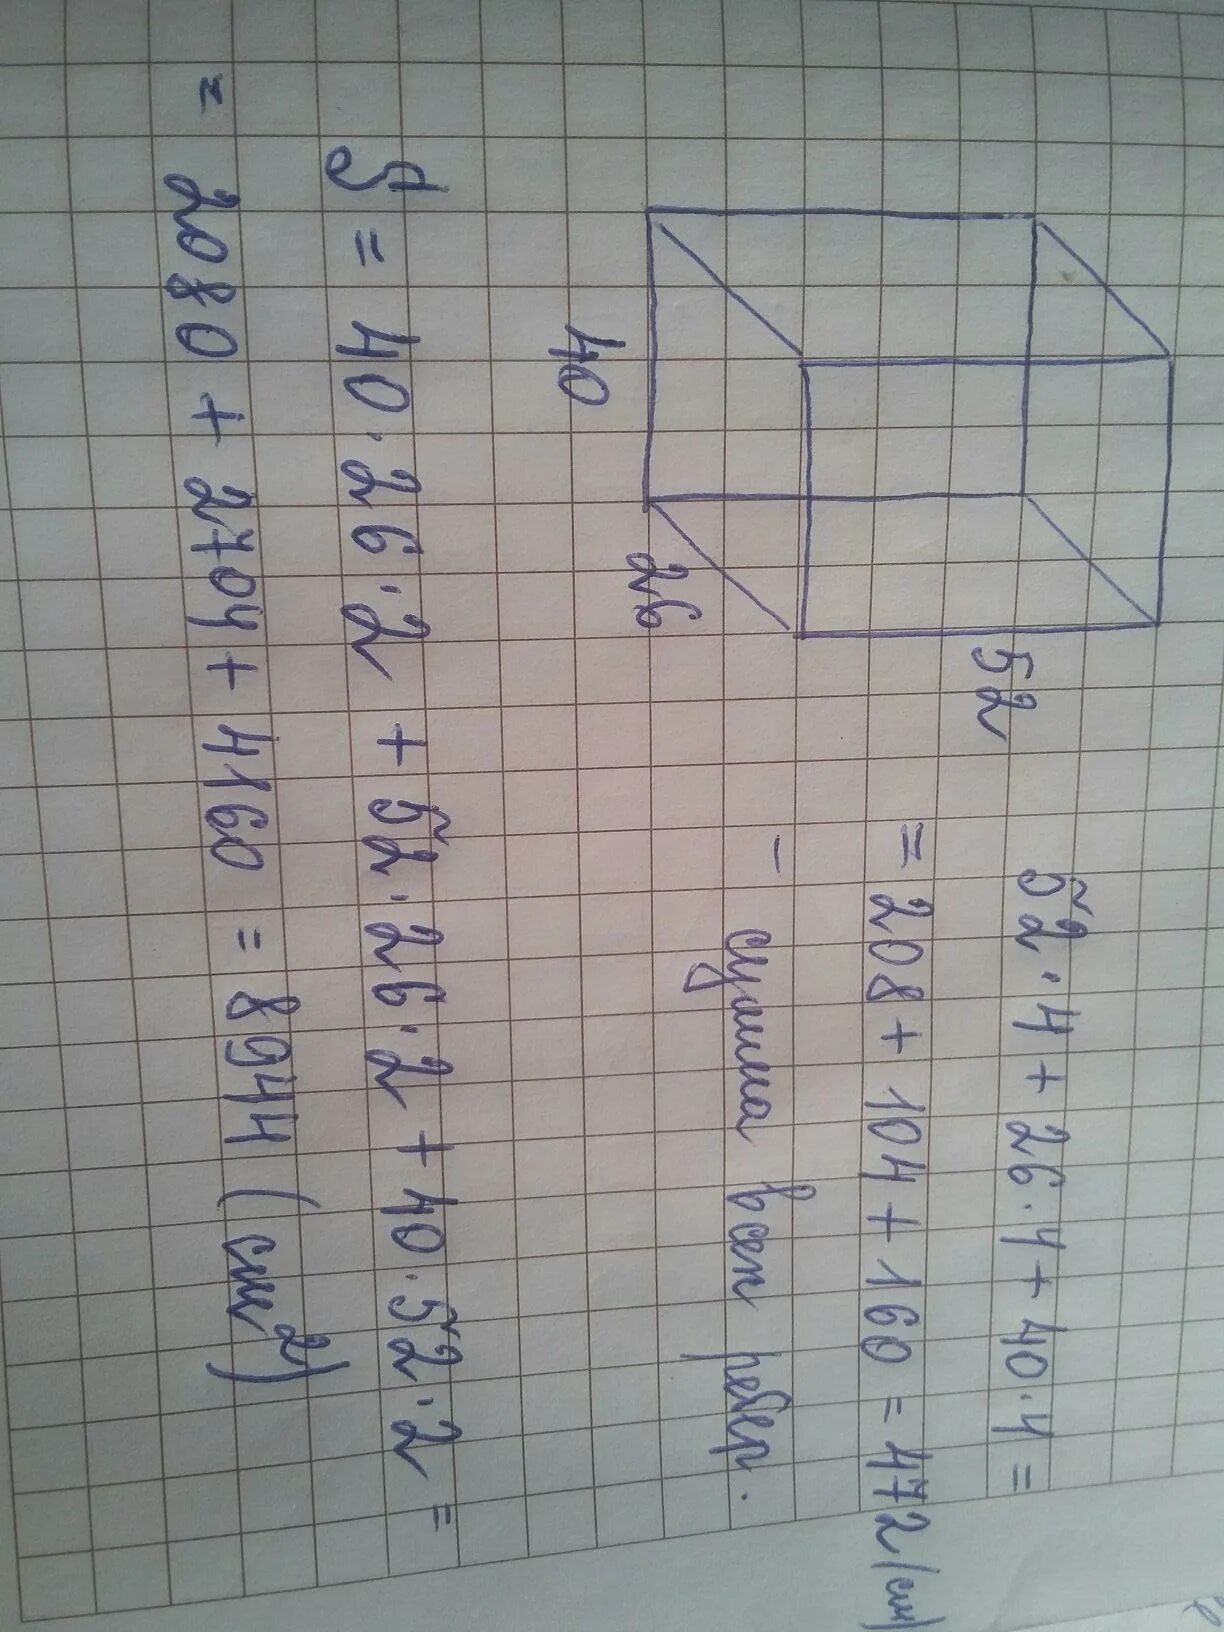 52·4 + 26·4 + 40·4 =
= 208 + 104 + 160 = 472 (см)
- сумма всех ребер.
52
26
40
S = 40·26·2 + 52·26·2 + 40·52·2 =
= 2080 + 2704 + 4160 = 8944 (см²)